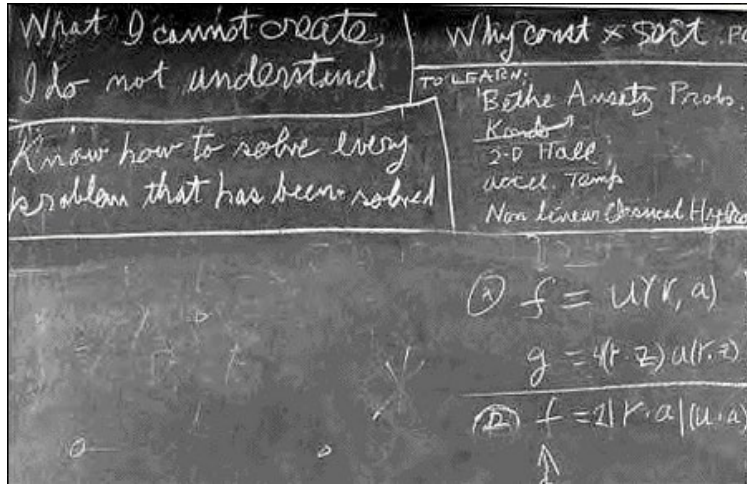 What I cannot create,
I do not understand.
Know how to solve every
problem that has been solved
Why const × sort .PO
TO LEARN:
Bethe Ansatz Probs.
Kondo
2-D Hall
accel. Temp
Non linear Classical Hydro
f = u(r, a)
g = 4(r·z) u(r·z)
f = 2|r·a|(u·a)